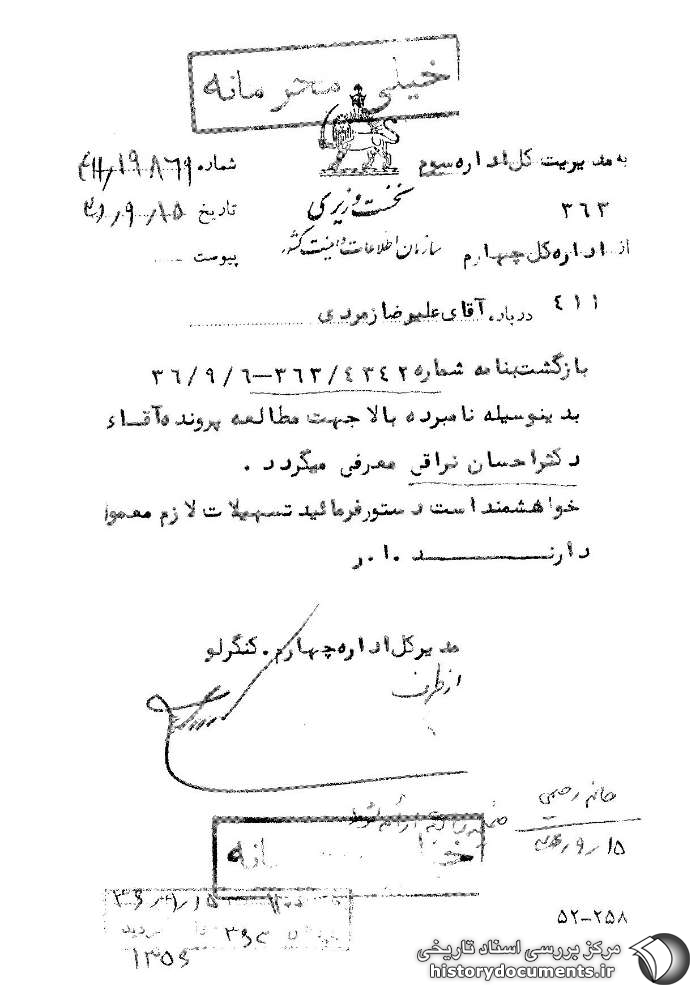 خیلی محرمانه
به مدیریت کل اداره سوم
۳۶۳
از اداره کل چهارم
۴۱۱
نخست وزیری
سازمان اطلاعات و امنیت کشور
شماره
تاریخ
پیوست
درباره آقای علیرضا زمردی
بازگشت بنامه شماره ۳۶۳/۴۳۴۲–۳۶/۹/۶
بدینوسیله نامبرده بالا جهت مطالعه پرونده آقاء
دکتر احسان نراقی معرفی میگردد .
خواهشمند است دستور فرمائید تسهیلات لازم معمول
دارند ۱۰.ر
مدیر کل اداره چهارم . کنگرلو
از طرف
خانم رحیمی
۱۵ر۹ر۳۶
۱۳۵۶
۵۲–۲۵۸
مرکز بررسی اسناد تاریخی
historydocuments.ir